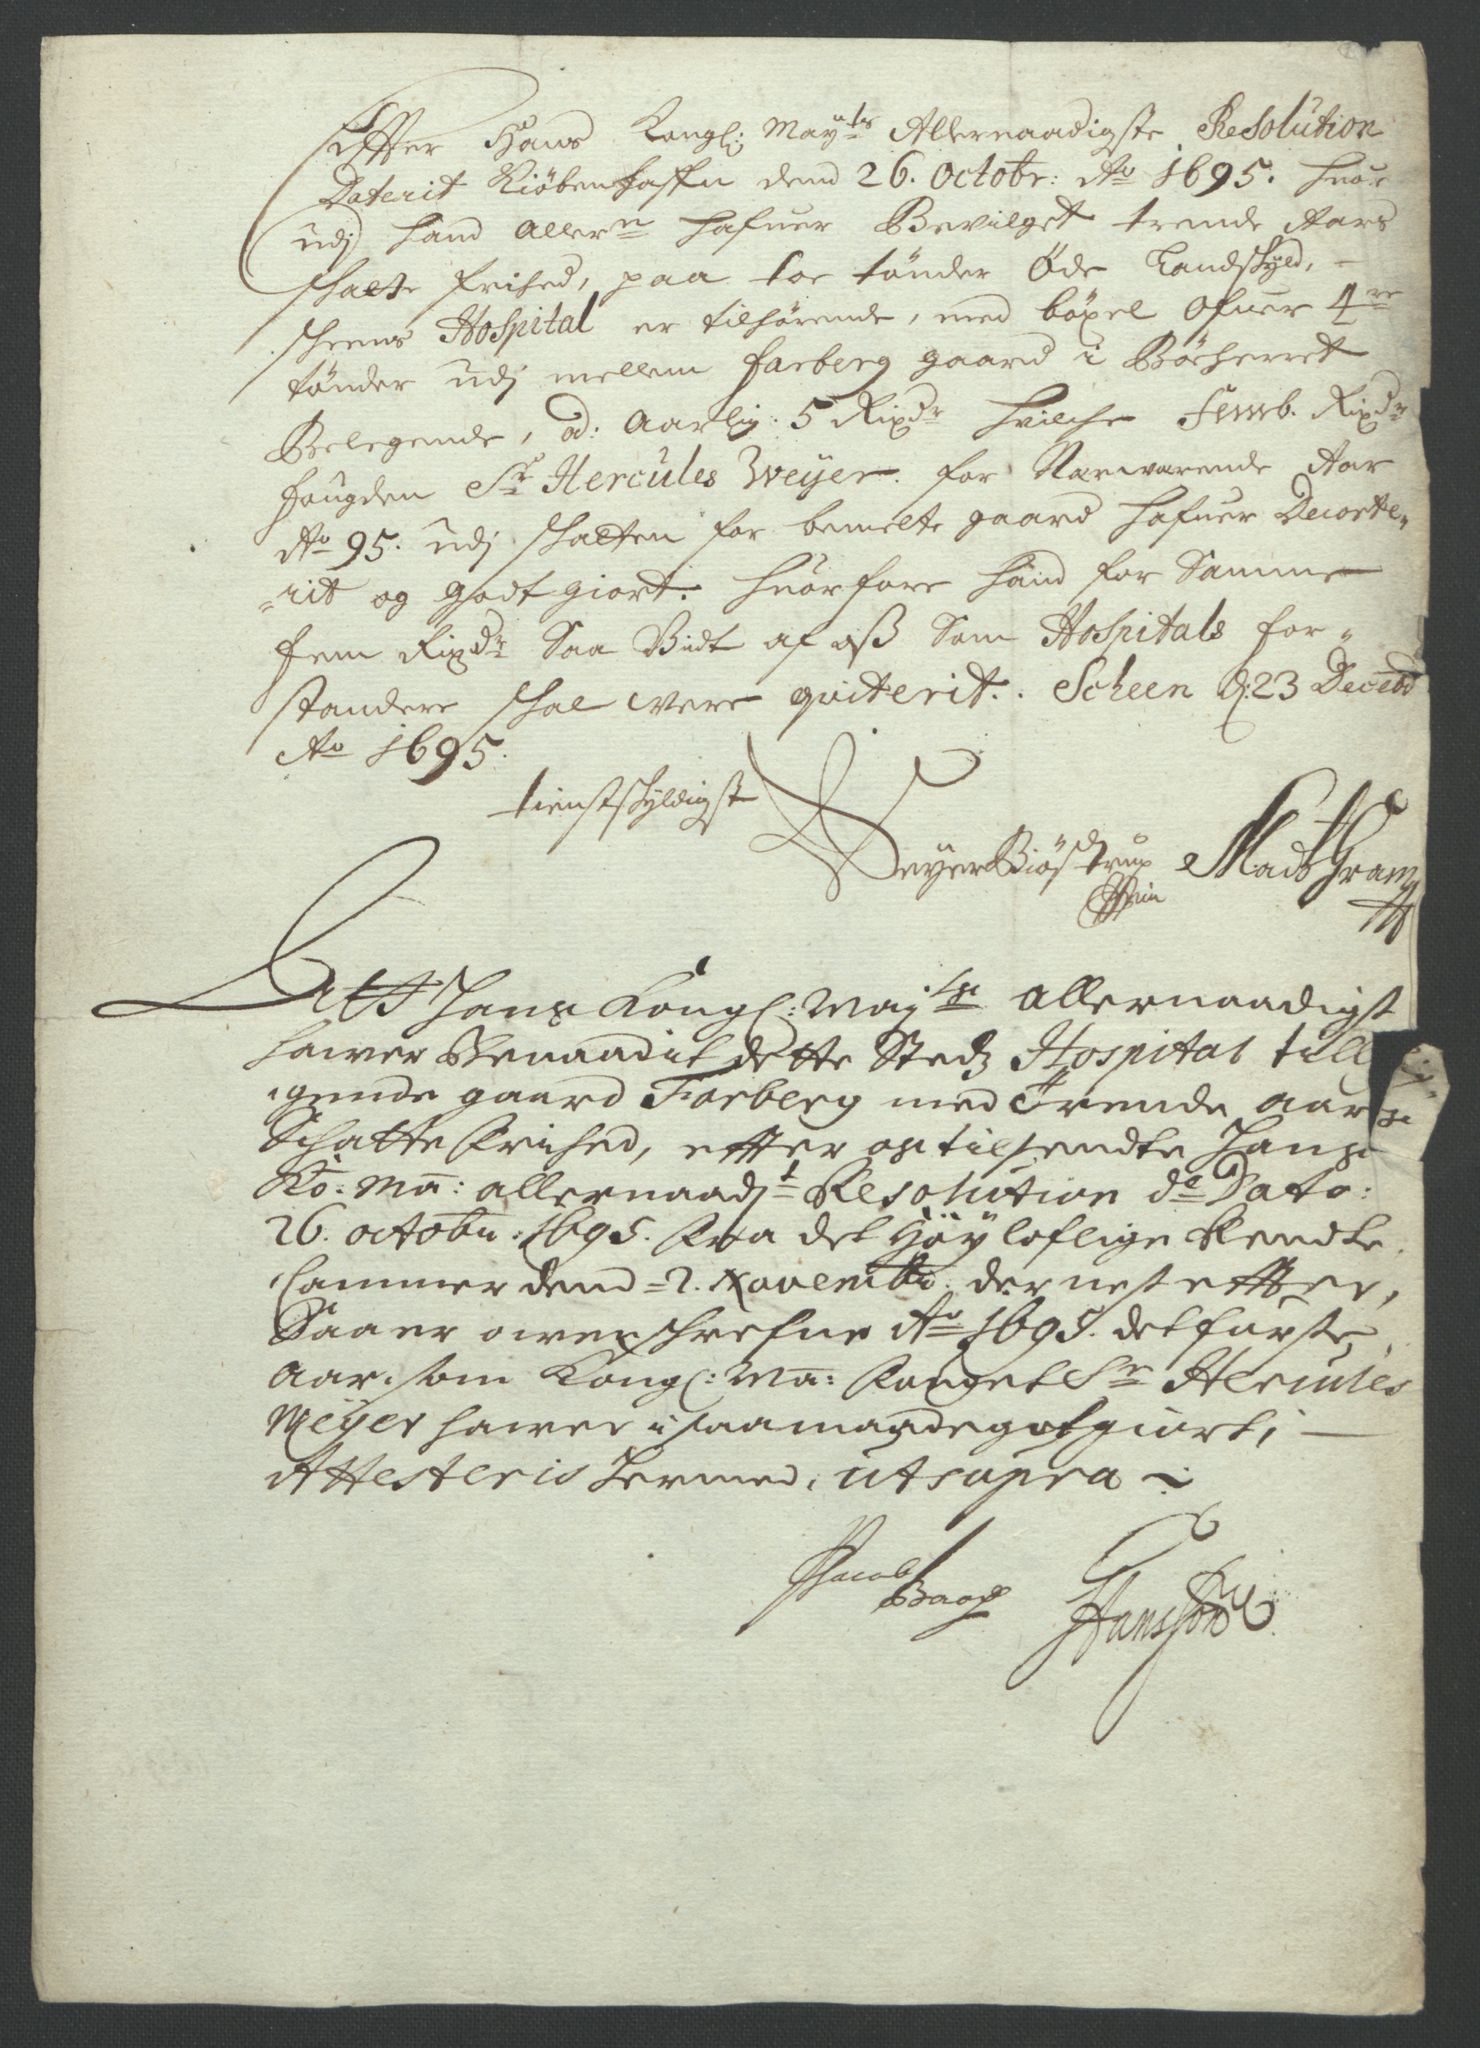 Effter Hans Kongl: Mayts Allernaadigste Resolution
Daterit Kiöbenhaffn dend 26. Octobr: Ao 1695. huor
udj hand allern hafuer Bevilget trende Aars
schatte frihed, paa toe tønder Øde Landschyld,
scheens Hospital er tilhørende, med böxel ofuer 4re
tönder udj mellem farberg gaard i Böeherret
Belegende, ad: Aarlig 5 Rixdr hvilche femb. Rixdr
fougden Sr Hercules Weyer for Nærwarende Aar
Ao 95. udj schatten for bemelte gaard hafuer Decorte-
-rit og godt giort. huorfore hand for Samme
fem Rixdr Saa Vidt af oß Som Hospitals for-
standere schal were qviterit. Scheen d: 23 Decebr
Ao 1695.
tienstschyldigst
Seyer Biöstrup Mads Gram
Att Hans Kongl: Mayts allernaadigst
hawer Benaadit dette Steds Hospital till
gende gaard Farberg med trende aars
Schatte frihed, effter os tilsendte Hans
Ko: Ma: allernaadst Resolution de Dato:
26. octobr: 1695. fra det Høyloflige Rendte
Cammer dend 2. Novembr: der nest effter,
Saa er owenschrefne Ao 1695. det furste
aar, som Kongl: Ma: fouget Sr Hercules
Weyer hawer i saa maade gotgiort,
Attesteris hermed, ut supra
Jacob Baop Hanssön